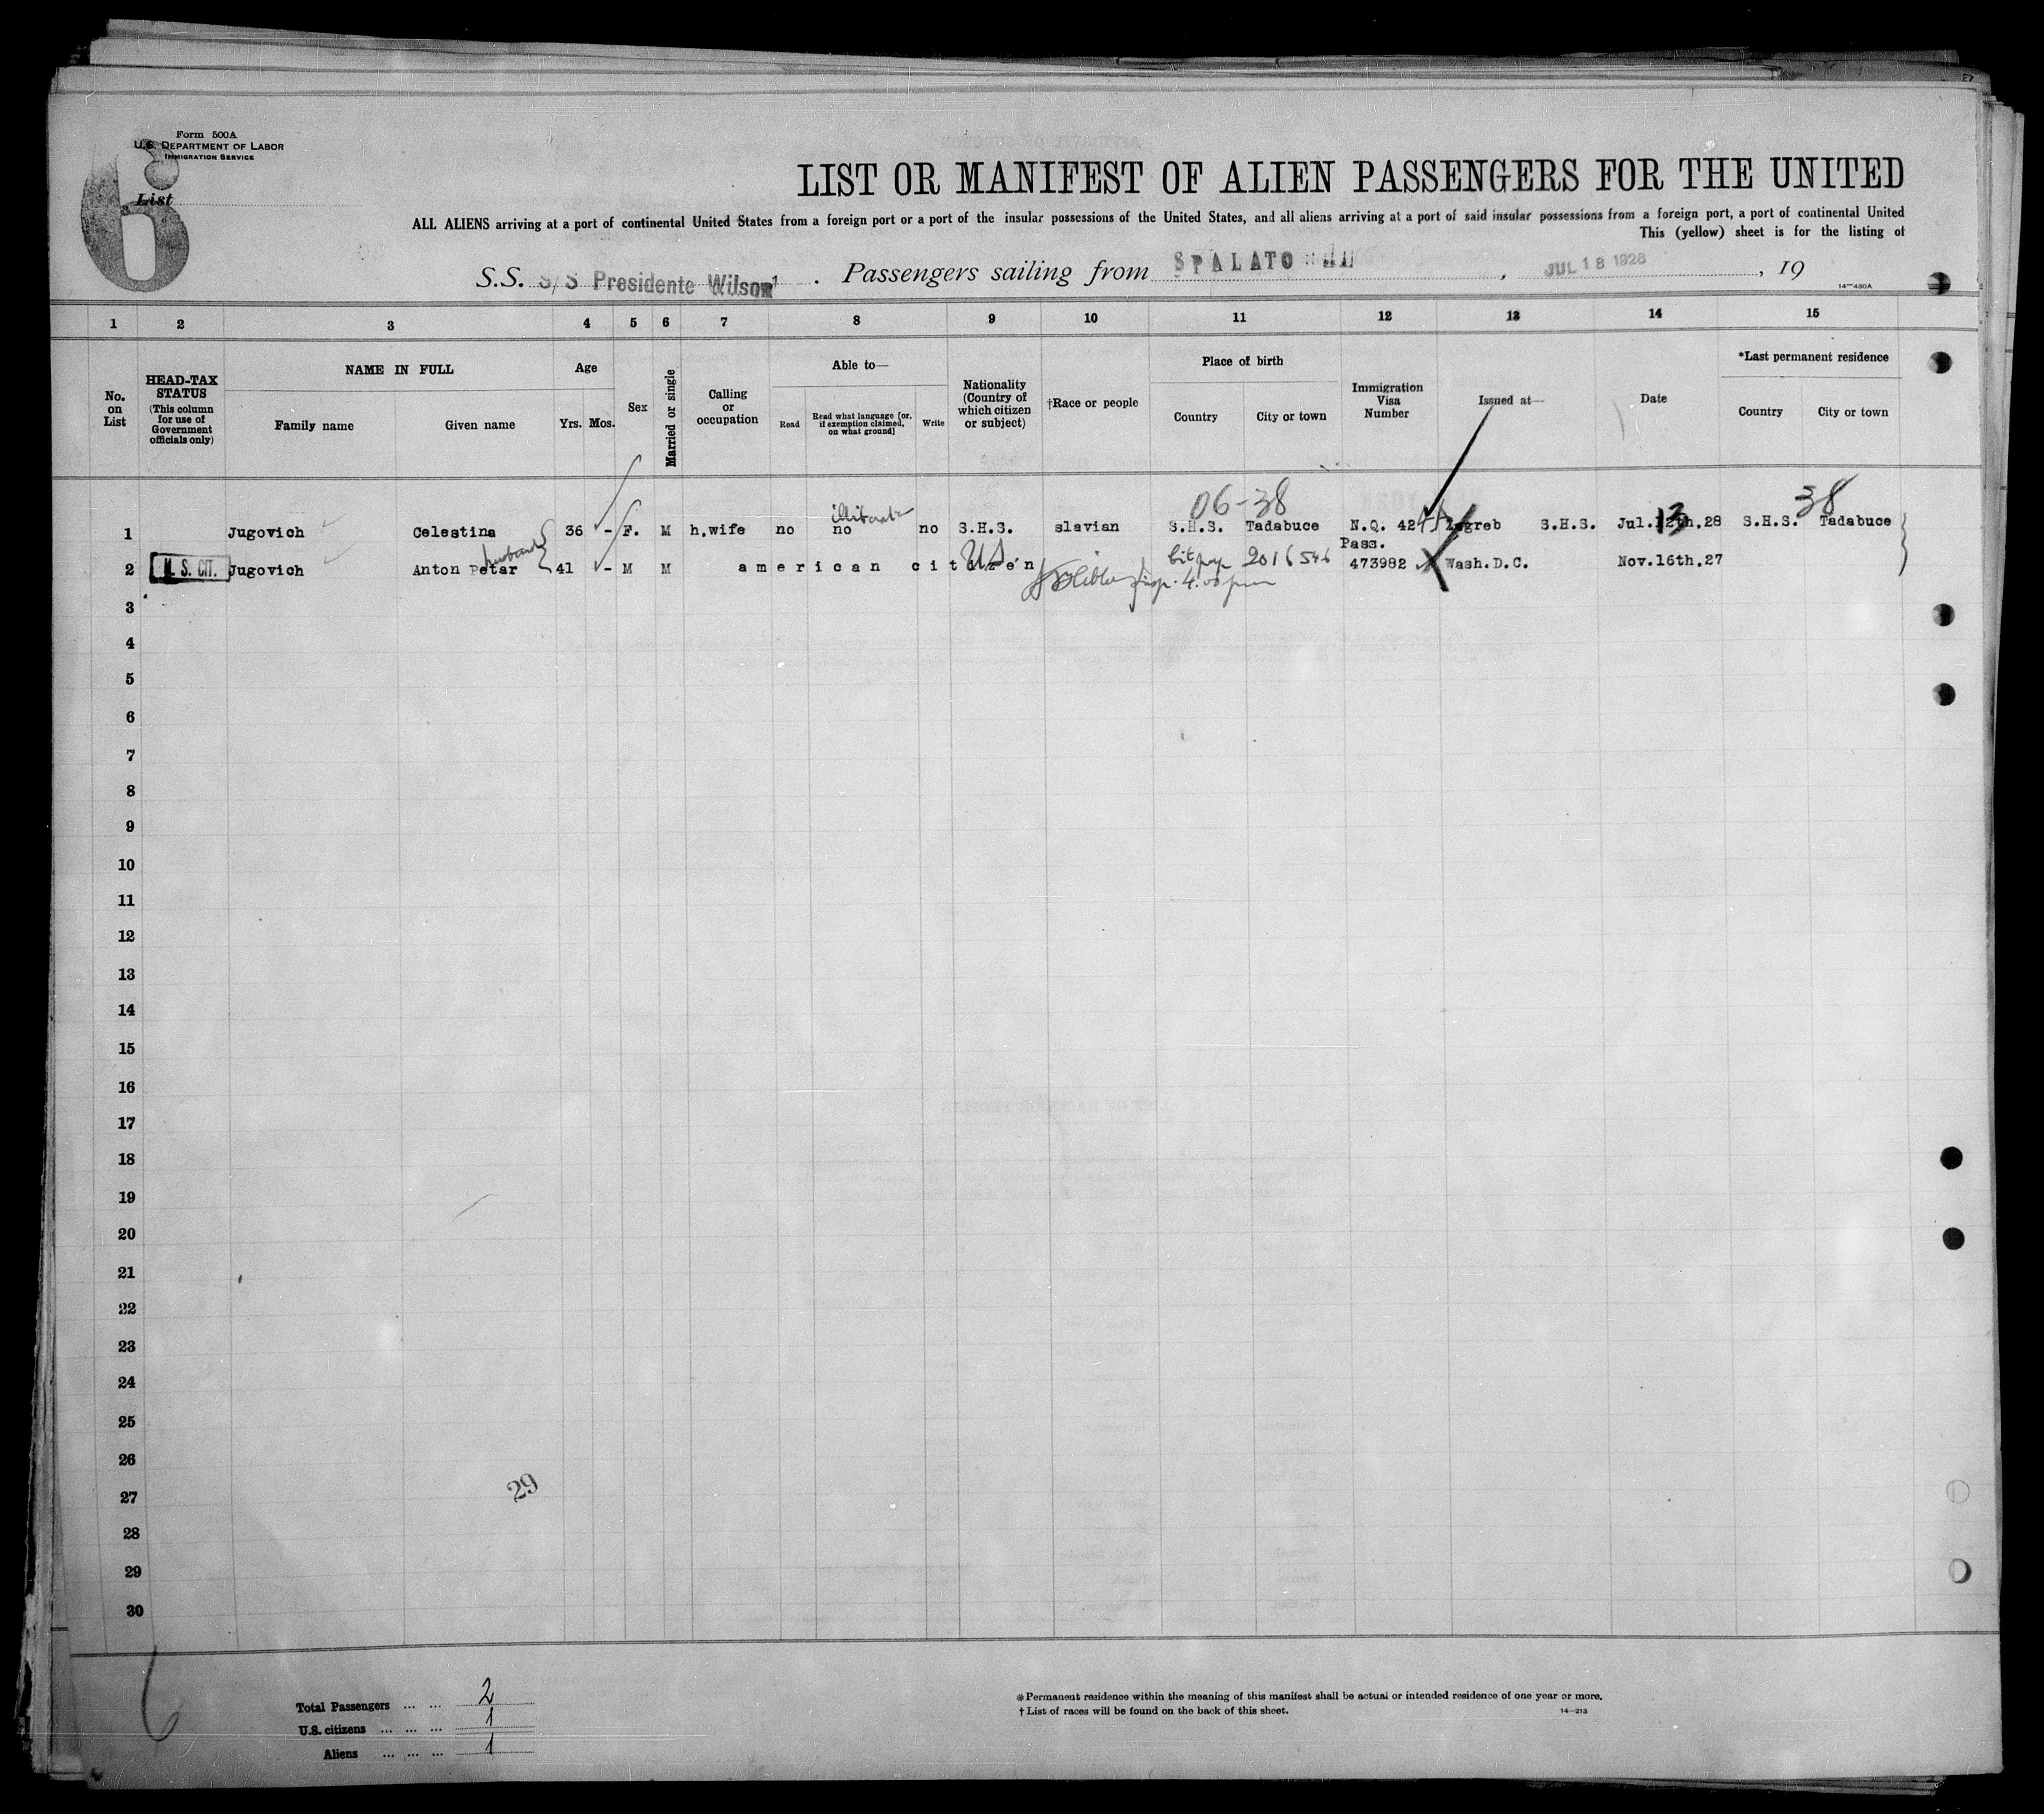 Form 500A
U.S. DEPARTMENT OF LABOR
IMMIGRATION SERVICE
6
List
LIST OR MANIFEST OF ALIEN PASSENGERS FOR THE UNITED
ALL ALIENS arriving at a port of continental United States from a foreign port or a port of the insular possessions of the United States, and all aliens arriving at a port of said insular possessions from a foreign port, a port of continental United
This (yellow) sheet is for the listing of
S.S. S/S Presidente Wilson . Passengers sailing from SPALATO , JUL 18 1928 , 19
14—430A
1 2 3 4 5 6 7 8 9 10 11 12 13 14 15
No. on List
HEAD-TAX STATUS (This column for use of Government officials only)
NAME IN FULL
Family name Given name
Age
Yrs. Mos.
Sex
Married or single
Calling or occupation
Able to—
Read Read what language [or, if exemption claimed, on what ground] Write
Nationality (Country of which citizen or subject)
†Race or people
Place of birth
Country City or town
Immigration Visa Number
Issued at—
Date
*Last permanent residence
Country City or town
06-38 38
illiterate
1 Jugovich Celestina 36 - F. M h.wife no no no S.H.S. slavian S.H.S. Tadabuce N.Q. 424 Zagreb S.H.S. Jul.12th.28 13 S.H.S. Tadabuce
husband Pass.
2 U.S. CIT. Jugovich Anton Petar 41 - M M american citizen U.S. 2016546 473982 Wash.D.C. Nov.16th.27
insp. 4.00 pm
3
4
5
6
7
8
9
10
11
12
13
14
15
16
17
18
19
20
21
22
23
24
25
26
27
28
29
30
29
6
Total Passengers ... ... 2
U.S. citizens ... ... ... 1
Aliens ... ... ... 1
*Permanent residence within the meaning of this manifest shall be actual or intended residence of one year or more.
†List of races will be found on the back of this sheet.
14—213